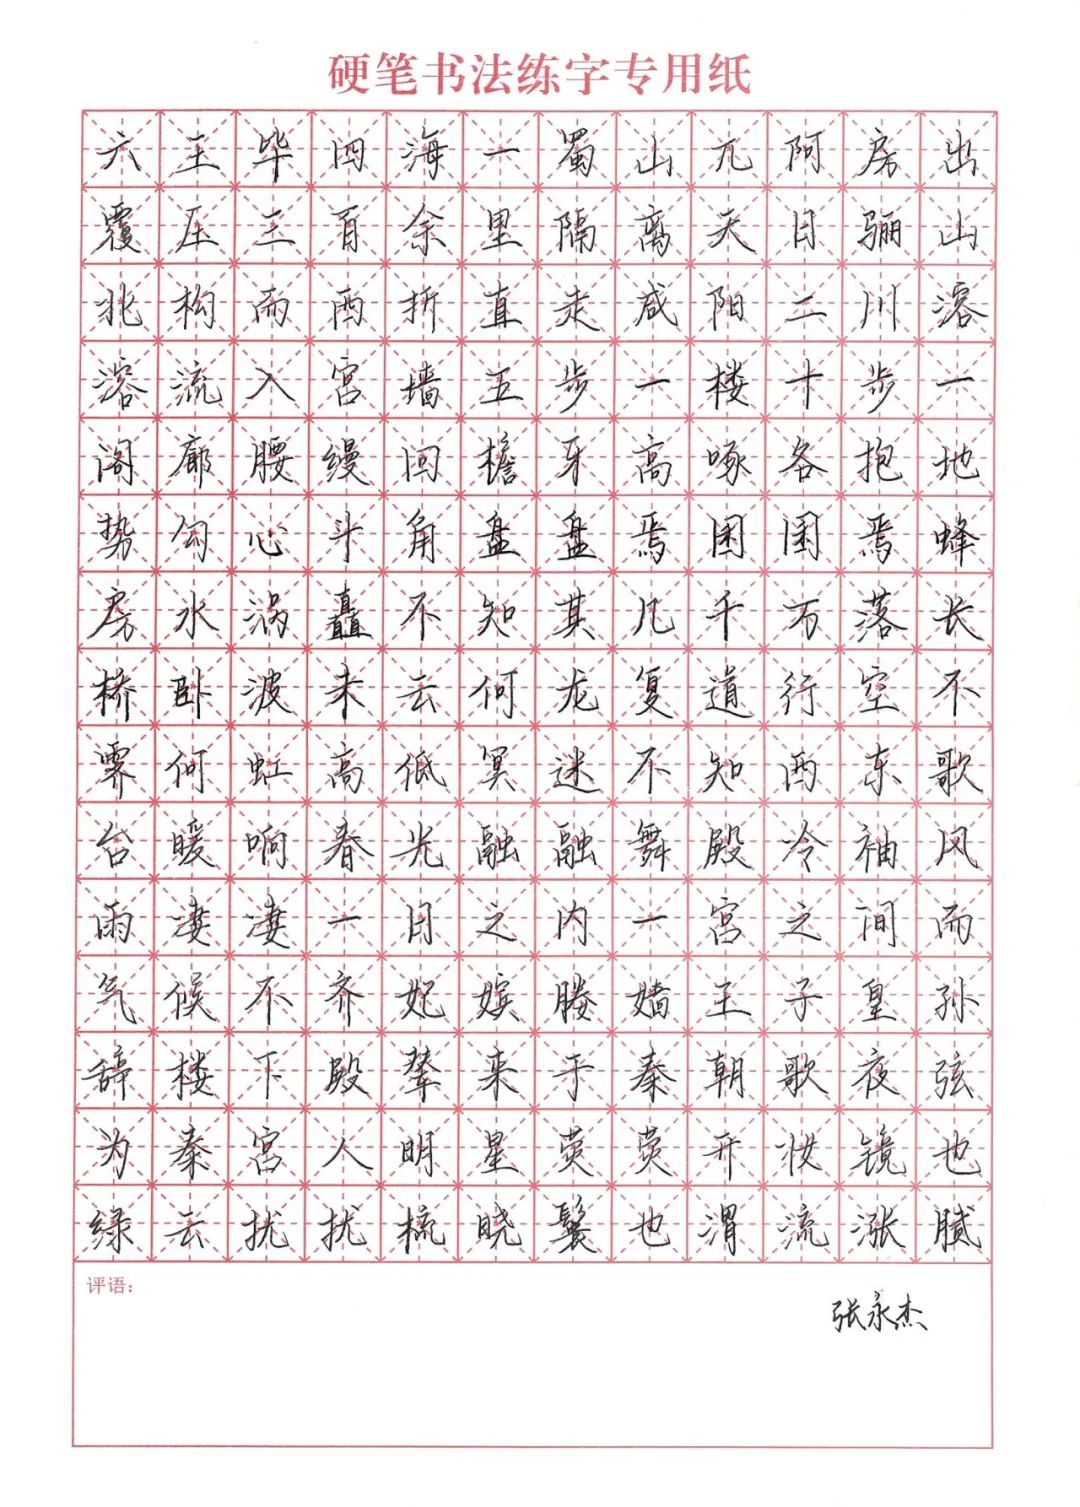 硬笔书法练字专用纸
六王毕四海一蜀山兀阿房出
覆压三百余里隔离天日骊山
北构而西折直走咸阳二川溶
溶流入宫墙五步一楼十步一
阁廊腰缦回檐牙高啄各抱地
势勾心斗角盘盘焉囷囷焉蜂
房水涡矗不知其几千万落长
桥卧波未云何龙复道行空不
霁何虹高低冥迷不知西东歌
台暖响春光融融舞殿冷袖风
雨凄凄一日之内一宫之间而
气候不齐妃嫔媵嫱王子皇孙
辞楼下殿辇来于秦朝歌夜弦
为秦宫人明星荧荧开妆镜也
绿云扰扰梳晓鬟也渭流涨腻
评语：
张永杰